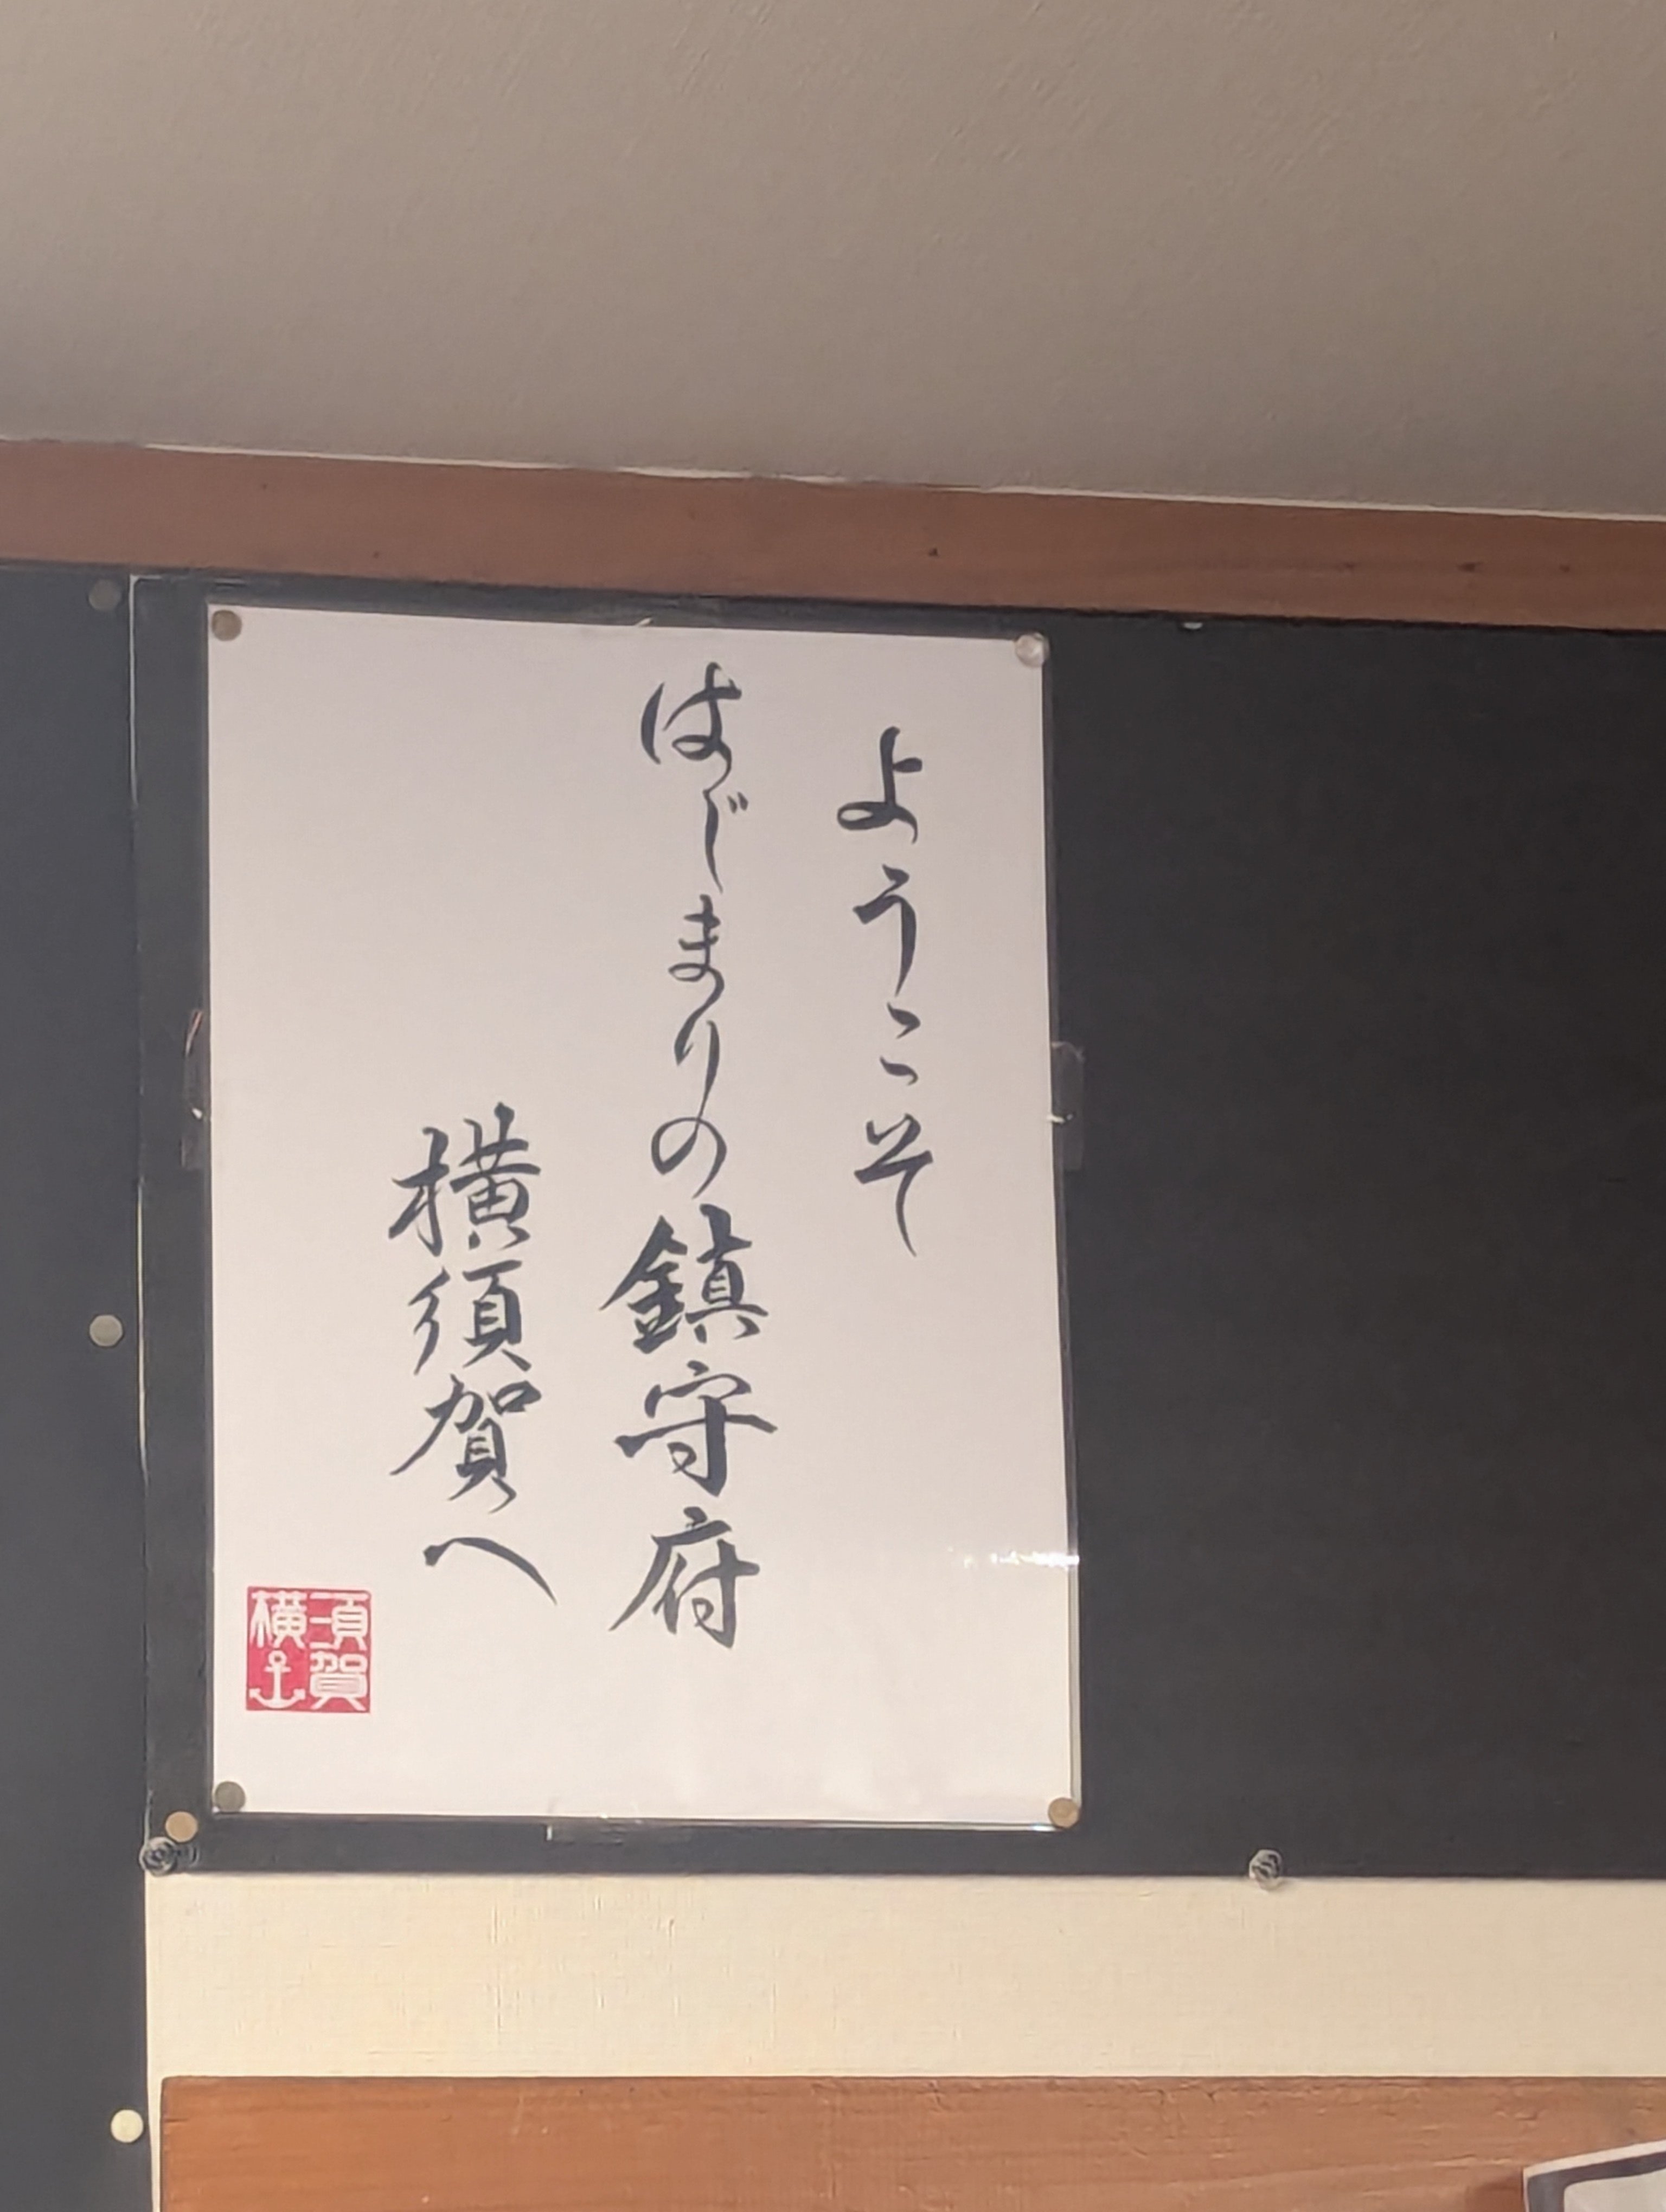 ようこそ
はじまりの鎮守府
横須賀へ
横須賀